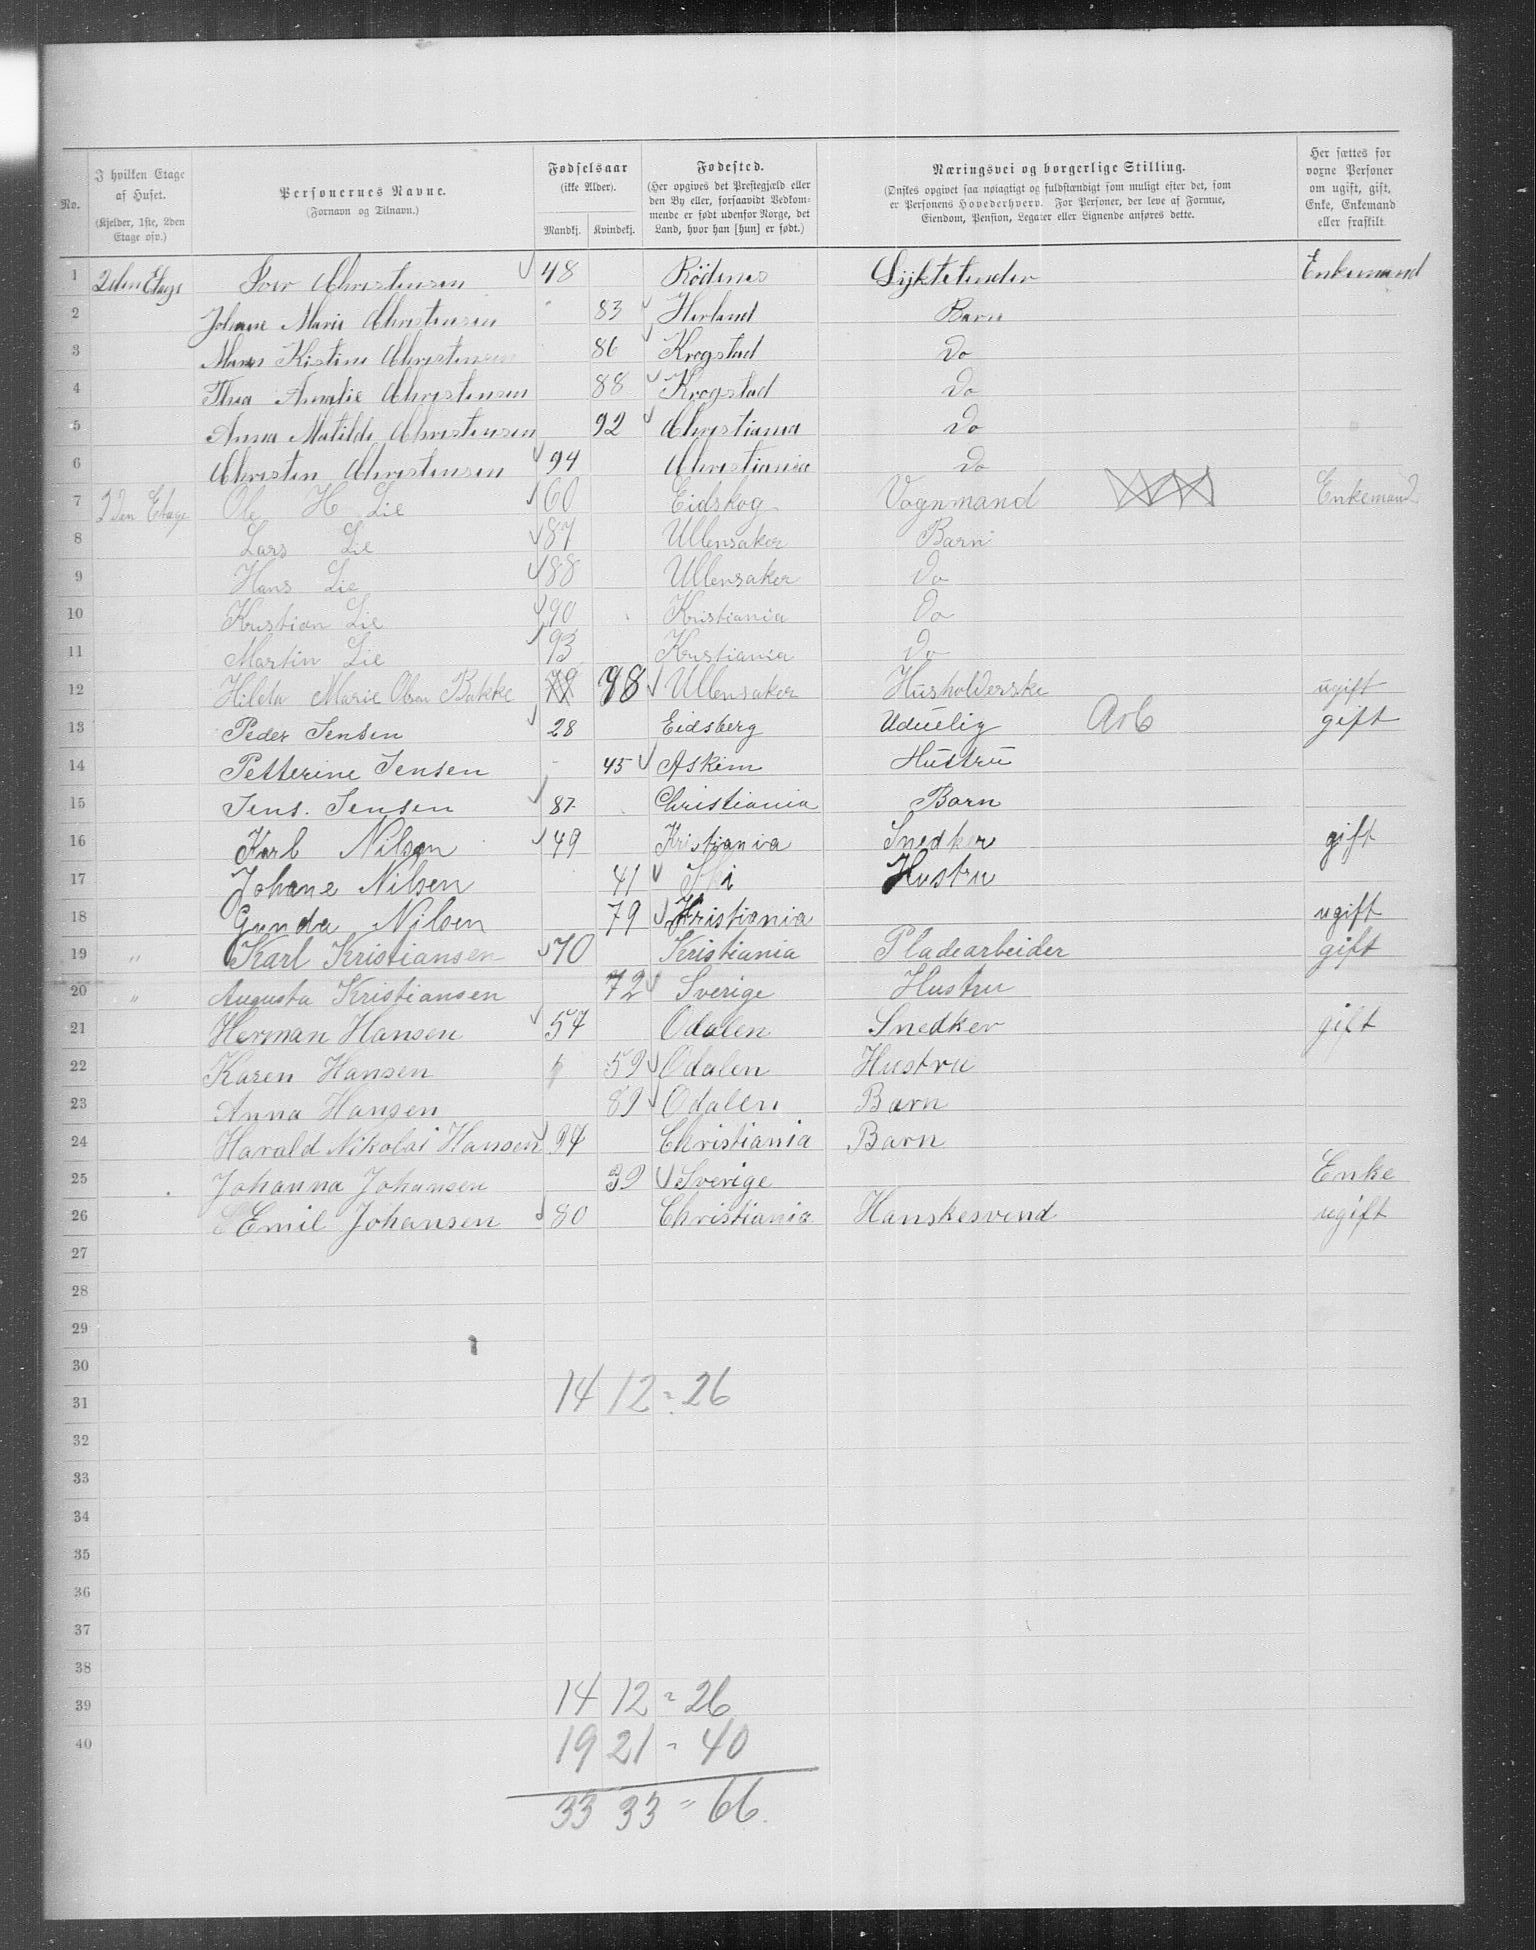 No.
I hvilken Etage af Huset. (Kjelder, 1ste, 2den Etage osv.)
Personernes Navne. (Fornavn og Tilnavn.)
Fødselsaar (ikke Alder). Mandkj. Kvindekj.
Fødested. (Her opgives det Prestegjæld eller den By eller, forsaavidt Vedkommende er født udenfor Norge, det Land, hvor han [hun] er født.)
Næringsvei og borgerlige Stilling. (Ønskes opgivet saa nøiagtigt og fuldstændigt som muligt efter det, som er Personens Hovederhverv. For Personer, der leve af Formue, Eiendom, Pension, Legater eller Lignende anføres dette.
Her sættes for voxne Personer om ugift, gift, Enke, Enkemand eller fraskilt.
1 2den Etage Iver Christensen 48 Rödenes Lyktetender Enkemand
2 Johane Marie Christensen 83 Herland Barn
3 Kistine Christensen 86 Krogstad Do
4 Thea Amalie Christensen 88 Krogstad Do
5 Anna Matilde Christensen 92 Christiania Do
6 Christen Christensen 94 Christiania Do
7 2den Etage Ole H Lie 60 Eidskog Vognmand Enkemand
8 Lars Lie 87 Ullensaker Barn
9 Hans Lie 88 Ullensaker Do
10 Kristian Lie 90 Kristiania Do
11 Martin Lie 93 Kristiania Do
12 Hilda Marie Olsen Bakke 78 Ullensaker Husholderske ugift
13 Peder Jensen 28 Eidsberg Uduelig Arb gift
14 Petterine Jensen 45 Askim Hustru
15 Jens. Jensen 87 Christiania Barn
16 Karl Nilsen 49 Kristiania Snedker gift
17 Johane Nilsen 41 Ski Hustru
18 Gunda Nilsen 79 Kristiania ugift
19 " Karl Kristiansen 70 Kristiania Pladearbeider gift
20 " Augusta Kristiansen 72 Sverige Hustru
21 Herman Hansen 57 Odalen Snedker gift
22 Karen Hansen 59 Odalen Hustru
23 Anna Hansen 89 Odalen Barn
24 Harald Nikolai Hansen 94 Christiania Barn
25 Johanna Johansen 39 Sverige Enke
26 Emil Johansen 80 Christiania Hanskesvend ugift
27
28
29
30
31 14 12 = 26
32
33
34
35
36
37
38
39 14 12 = 26
40 19 21 = 40
33 33 = 66.